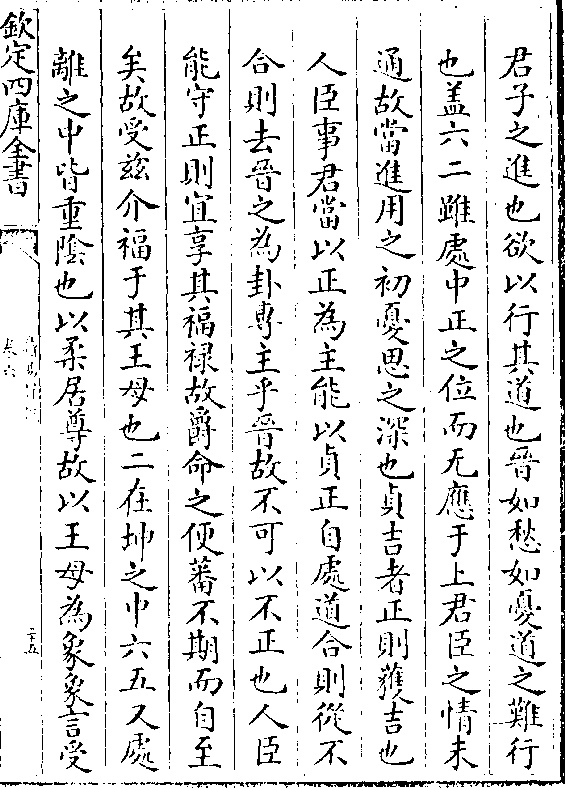 君子之進也欲以行其道也晉如愁如憂道之難行
也蓋六二雖處中正之位而无應于上君臣之情未
通故當進用之初憂思之深也貞吉者正則獲吉也
人臣事君當以正為主能以貞正自處道合則從不
合則去晉之為卦專主乎晉故不可以不正也人臣
能守正則宜享其福禄故爵命之使蕃不期而自至
矣故受兹介福于其王母也二在坤之中六五又處
離之中皆重陰也以柔居尊故以王母為象象言受
欽定四庫全書
卷六
二十五